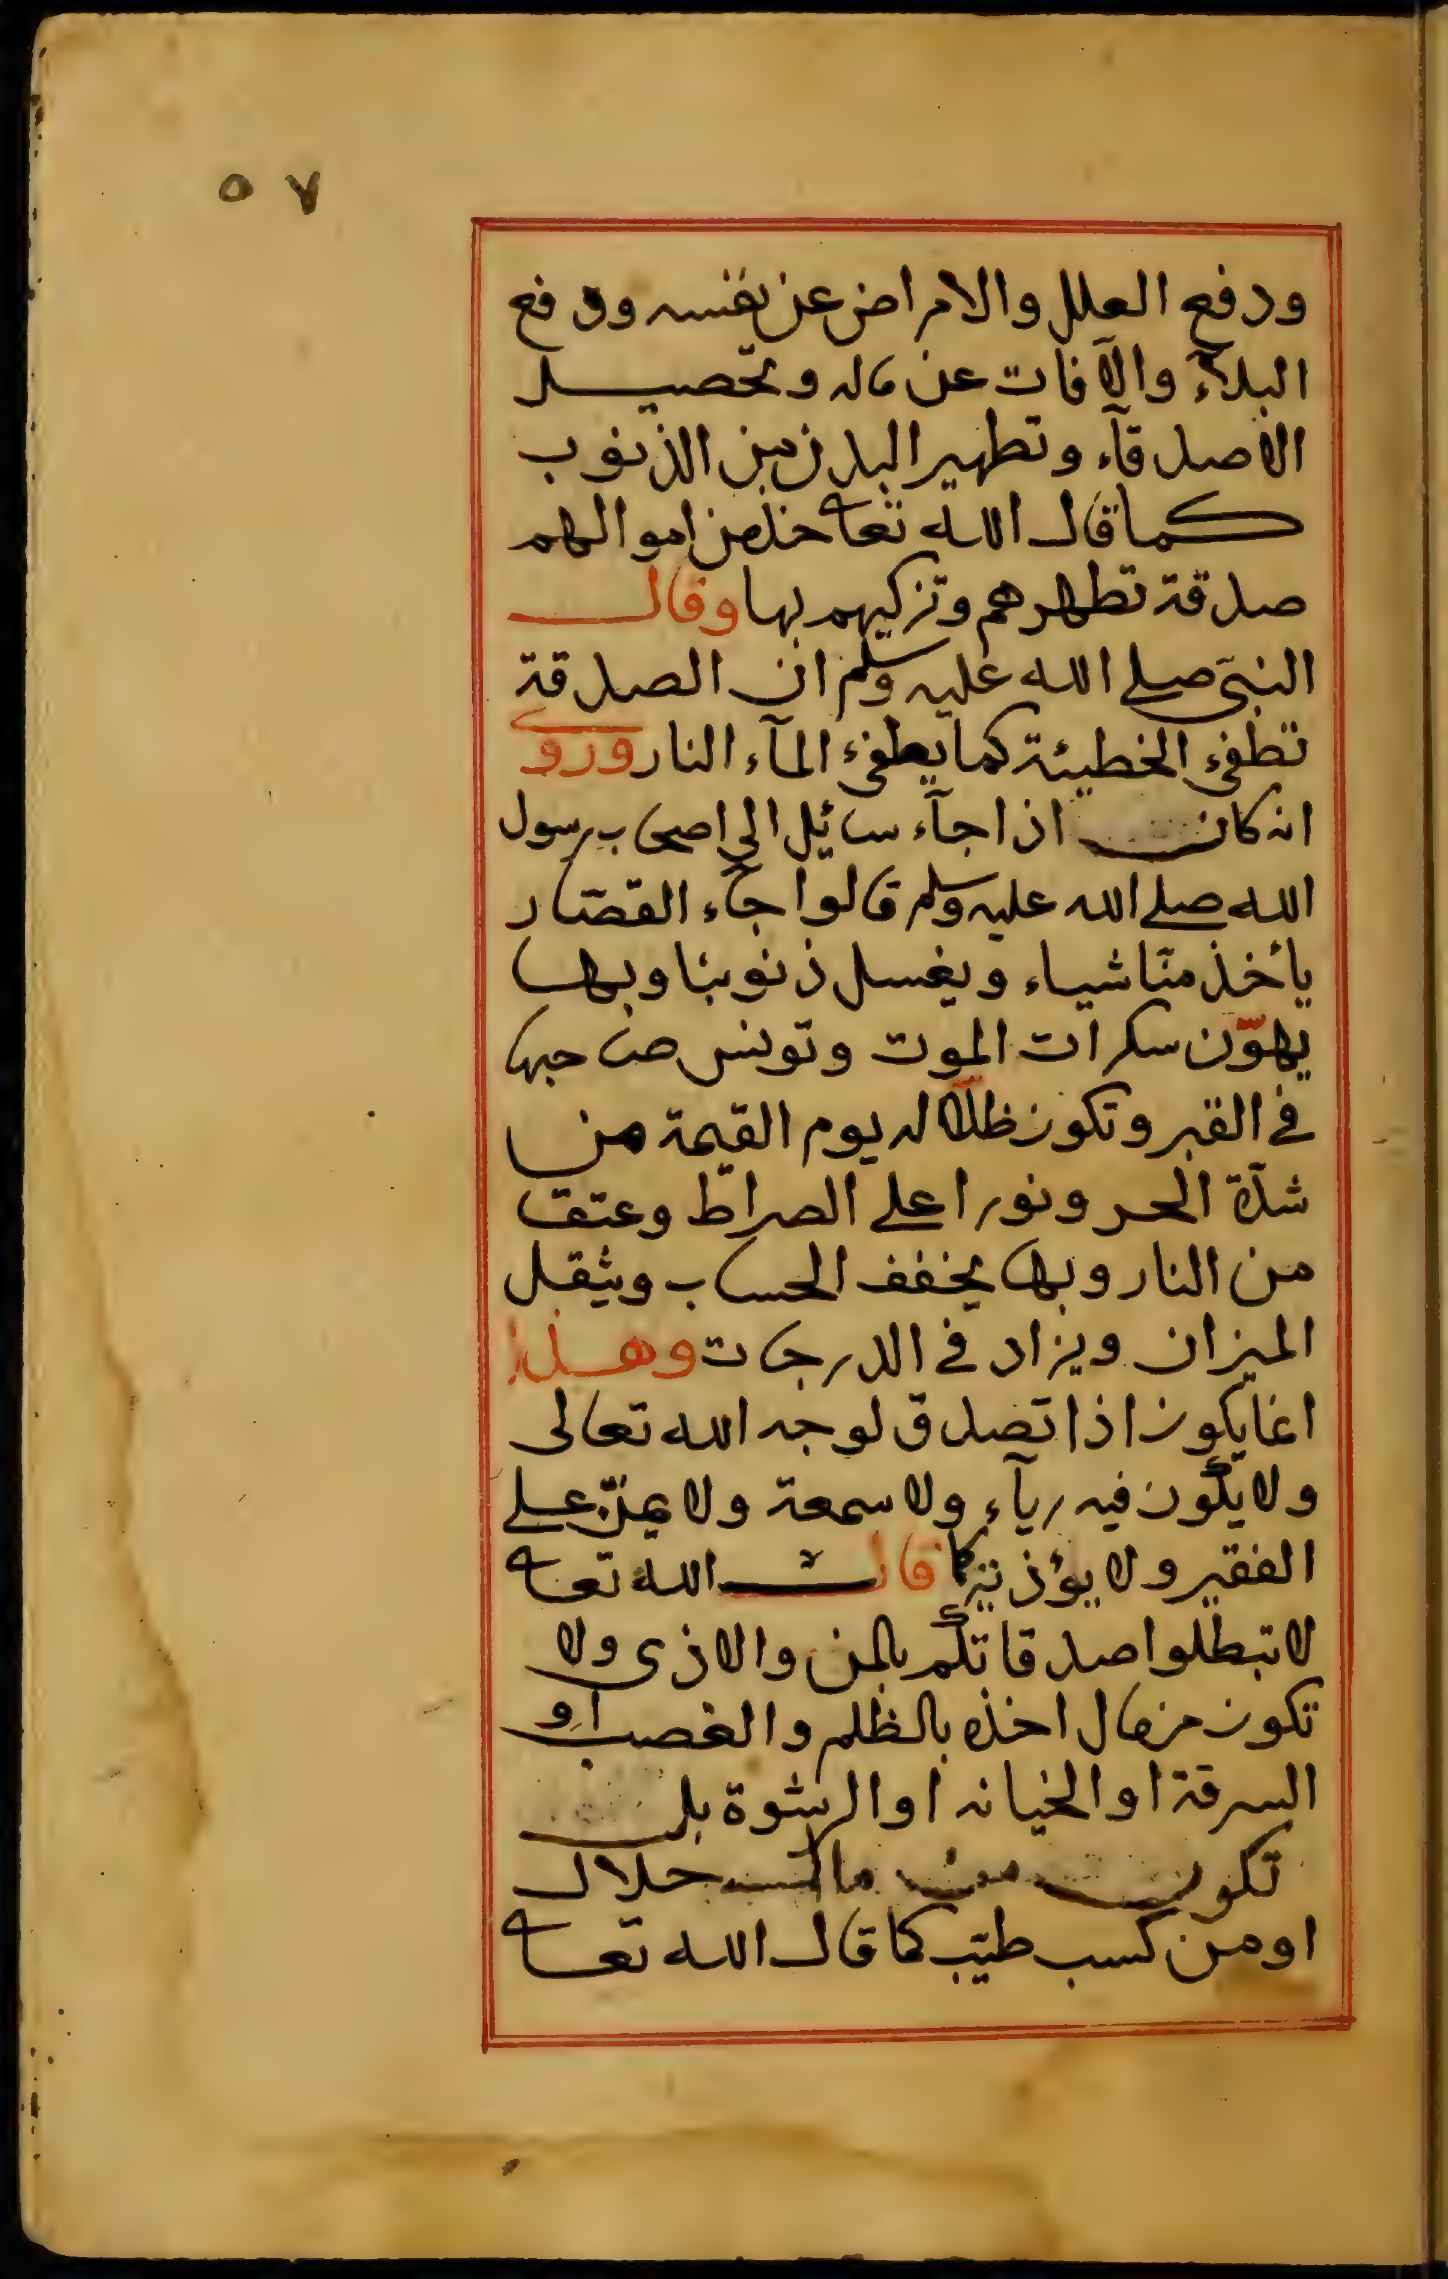 ٥٧
ودفع العلل والامراض عن نفسه ودفع
البلآء والآفات عن ماله وتحصيل
الاصدقآء وتطهير البدن من الذنوب
كما قال الله تعا خذ من اموالهم
صدقة تطهرهم وتزكيهم بها وقال
النبى صلى الله عليه وسلم ان الصدقة
تطفئ الخطيئة كما يطفئ المآء النار وروى
انه كان اذا جآء سائل الى اصحاب رسول
الله صلى الله عليه وسلم قالوا جاء القصّار
يأخذ منّا شياء ويغسل ذنوبنا وبها
يهوّن سكرات الموت وتونس صاحبها
فى القبر وتكون ظلّا له يوم القيمة من
شدّة الحر ونورا على الصراط وعتق
من النار وبها يخفف الحساب ويثقل
الميزان ويزاد فى الدرجات وهذا
انما يكون اذا تصدق لوجه الله تعالى
ولا يكون فيه ريآء ولا سمعة ولا يمنّ على
الفقير ولا يؤذيه كما قال الله تعا
لا تبطلوا صدقاتكم بالمن والاذى ولا
تكون من مال اخذه بالظلم والغصب او
السرقة او الخيانه او الرشوة بل
تكون من مال حلال
او من كسب طيّب كما قال الله تعا